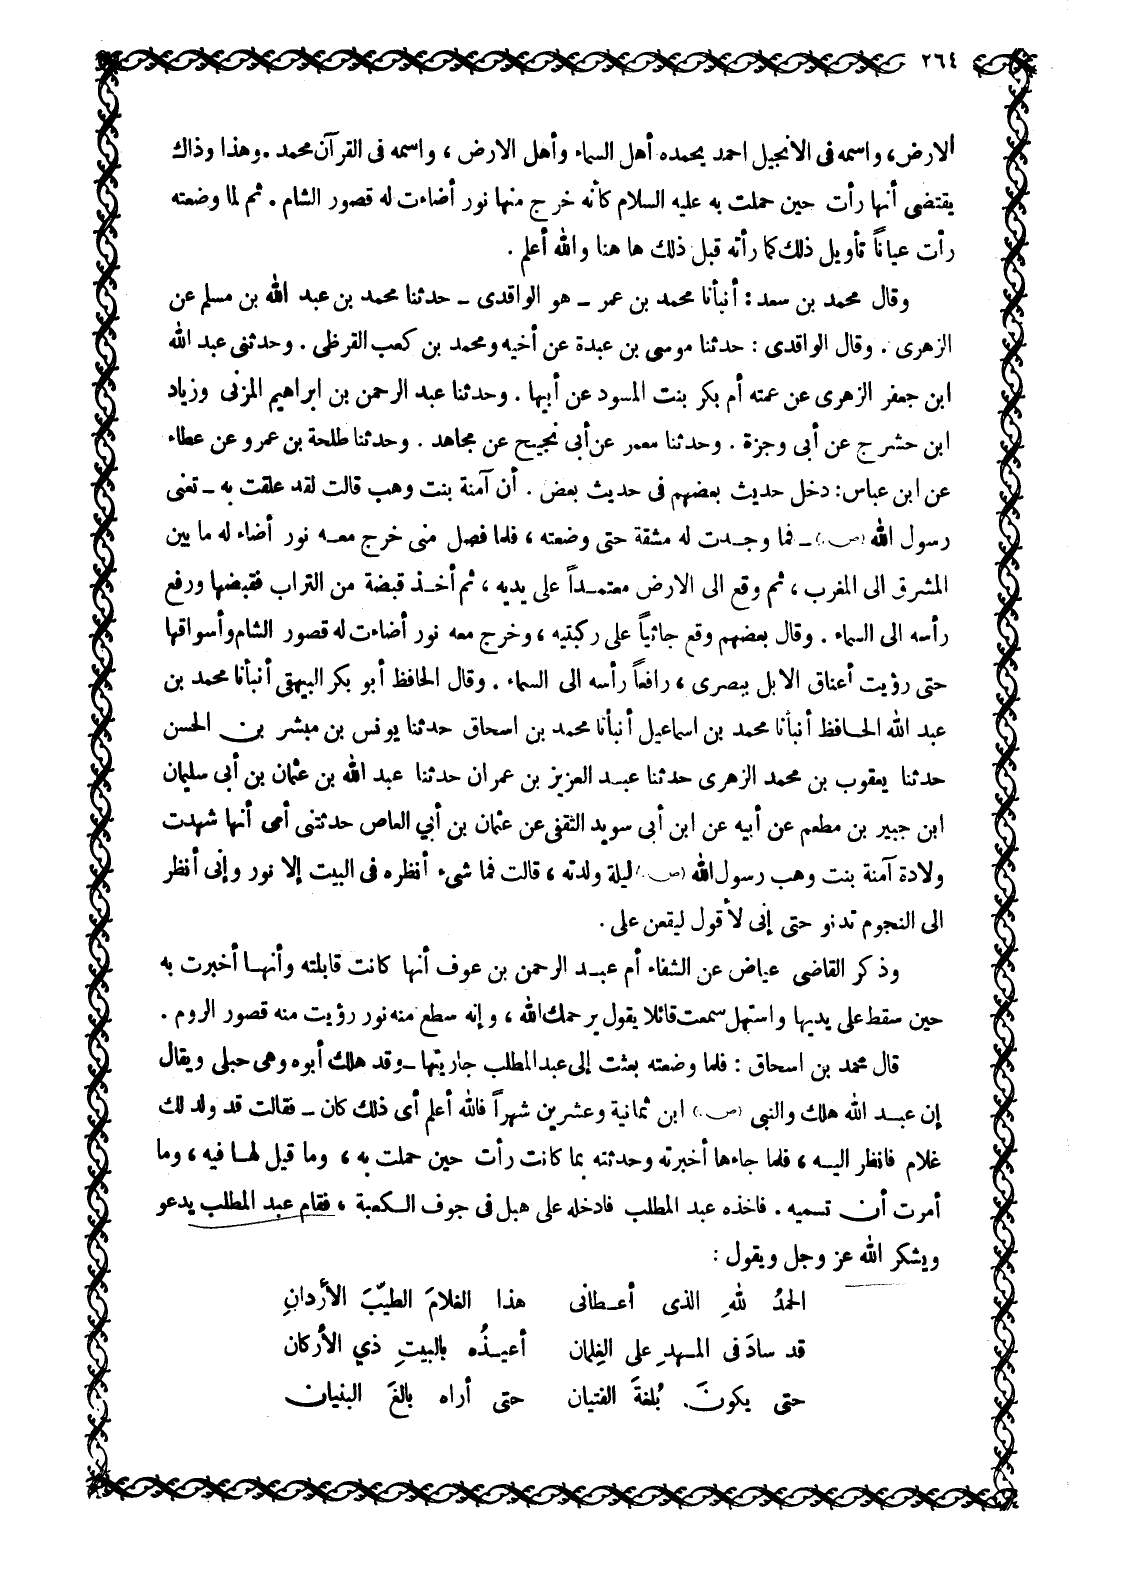 ٢٦٤
الارض، واسمه فى الانجيل احمد يحمده أهل السماء وأهل الارض، واسمه فى القرآن محمد. وهذا وذاك
يقتضى أنها رأت حين حملت به عليه السلام كأنه خرج منها نور أضاءت له قصور الشام. ثم لما وضعته
رأت عياناً تأويل ذلك كما رأته قبل ذلك ها هنا والله أعلم.
وقال محمد بن سعد: أنبأنا محمد بن عمر - هو الواقدى - حدثنا محمد بن عبد الله بن مسلم عن
الزهرى. وقال الواقدى: حدثنا موسى بن عبدة عن أخيه ومحمد بن كعب القرظى. وحدثنى عبد الله
ابن جعفر الزهرى عن عمته أم بكر بنت المسود عن أبيها. وحدثنا عبد الرحمن بن ابراهيم المزنى وزياد
ابن حشرج عن أبى وجزة. وحدثنا معمر عن أبى نجيح عن مجاهد. وحدثنا طلحة بن عمرو عن عطاء
عن ابن عباس: دخل حديث بعضهم فى حديث بعض. أن آمنة بنت وهب قالت لقد علقت به - تعنى
رسول الله (ص.) - فما وجدت له مشقة حتى وضعته، فلما فصل منى خرج معه نور أضاء له ما بين
المشرق الى المغرب، ثم وقع الى الارض معتمداً على يديه، ثم أخذ قبضة من التراب فقبضها ورفع
رأسه الى السماء. وقال بعضهم وقع جاثياً على ركبتيه، وخرج معه نور أضاءت له قصور الشام وأسواقها
حتى رؤيت أعناق الابل ببصرى، رافعاً رأسه الى السماء. وقال الحافظ أبو بكر البيهقى أنبأنا محمد بن
عبد الله الحافظ أنبأنا محمد بن اسماعيل أنبأنا محمد بن اسحاق حدثنا يونس بن مبشر بن الحسن
حدثنا يعقوب بن محمد الزهرى حدثنا عبد العزيز بن عمران حدثنا عبد الله بن عثمان بن أبى سليمان
ابن جبير بن مطعم عن أبيه عن ابن أبى سويد الثقفى عن عثمان بن أبي العاص حدثتنى أمى أنها شهدت
ولادة آمنة بنت وهب رسول الله (ص.) ليلة ولدته، قالت فما شىء أنظره فى البيت إلا نور وإنى أنظر
الى النجوم تدنو حتى إنى لأقول ليقعن على.
وذكر القاضى عياض عن الشفاء أم عبد الرحمن بن عوف أنها كانت قابلته وأنها أخبرت به
حين سقط على يديها واستهل سمعت قائلا يقول يرحمك الله، وإنه سطع منه نور رؤيت منه قصور الروم.
قال محمد بن اسحاق: فلما وضعته بعثت إلى عبد المطلب جاريتها - وقد هلك أبوه وهى حبلى ويقال
إن عبد الله هلك والنبي (ص.) ابن ثمانية وعشرين شهراً فالله أعلم أى ذلك كان - فقالت قد ولد لك
غلام فانظر اليه، فلما جاءها أخبرته وحدثته بما كانت رأت حين حملت به، وما قيل لها فيه، وما
أمرت أن تسميه. فاخذه عبد المطلب فادخله على هبل فى جوف الكعبة، فقام عبد المطلب يدعو
ويشكر الله عز وجل ويقول:
الحمدُ للهِ الذى أعطانى هذا الغلامَ الطيّبَ الأردانِ
قد سادَ فى المهدِ على الغِلمان أعيذُه بالبيتِ ذي الأركان
حتى يكونَ بُلغةَ الفتيان حتى أراه بالغَ البنيان